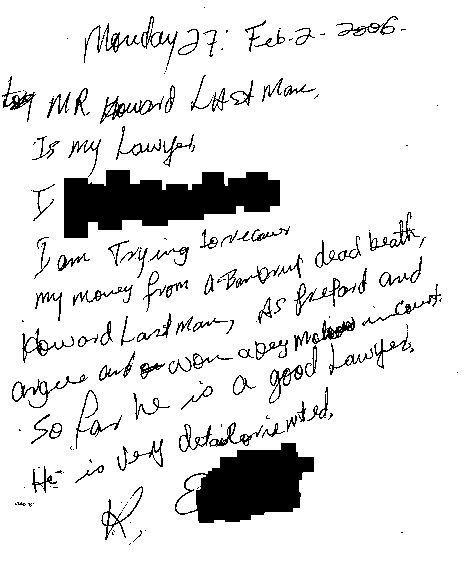 Monday 27: Feb-2-2006-
MR Howard Last Man,
Is my Lawyer,
I
I am Trying to recover
my money from a Bankrupt dead beath,
Howard Last Man, As prepard and
argue and won a very Motion in Court.
So far he is a good Lawyer,
He is very detail oriented,
K, E